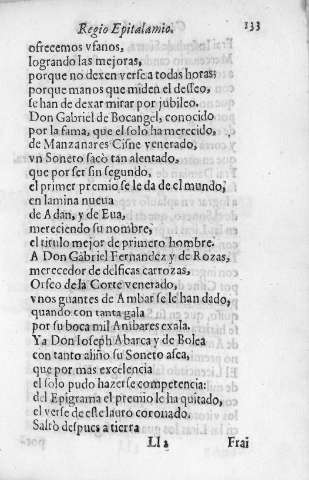 Regio Epitalamio. 133
ofrecemos vfanos,
logrando las mejoras,
porque no dexen verse a todas horas:
porque manos que miden el desseo,
se han de dexar mirar por jubileo.
Don Gabriel de Bocangel, conocido
por la fama, que el solo ha merecido,
de Mançanares Cisne venerado,
vn Soneto sacò tan alentado,
que por ser sin segundo,
el primer premio se le da de el mundo,
en lamina nueua
de Adan, y de Eua,
mereciendo su nombre,
el titulo mejor de primero hombre.
A Don Gabriel Fernandez y de Rozas,
merecedor de delficas carrozas,
Orfeo de la Corte venerado,
vnos guantes de Ambar se le han dado,
quando con tanta gala
por su boca mil Anibares exala.
Ya Don Ioseph Abarca y de Bolea
con tanto aliño su Soneto asea,
que por mas excelencia
el solo pudo hazerse competencia:
del Epigrama el premio le ha quitado,
el verse de este lauro coronado.
Saltò despues a tierra
Ll 2 Frai